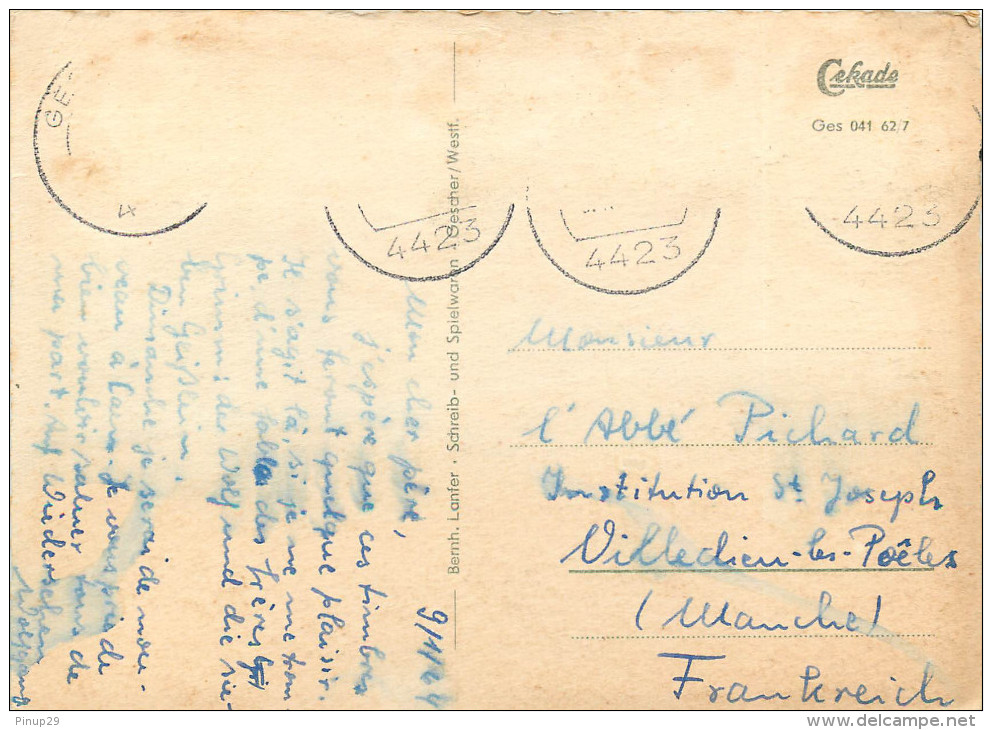 Cekade
Ges 041 62/7
GE
4423
4423
4423
Bernh. Lanfer · Schreib- und Spielwaren Gescher/Westf.
9/1/64
Mon cher père,
J'espère que ces timbres
vous feront quelque plaisir.
Il s'agit là, si je ne me trom
pe d'une fable des frères
Grimm: der Wolf und die sie-
ben Geißlein!
Dimanche je serai de nou-
veau à Caen. Je vous prie de
bien vouloir saluer tous de
ma part. Auf Wiedersehen
Wolfgang
Monsieur
l'Abbé Pichard
Institution St Joseph
Villedieu-les-Poêles
(Manche)
Frankreich
Pinup29
www.delcampe.net